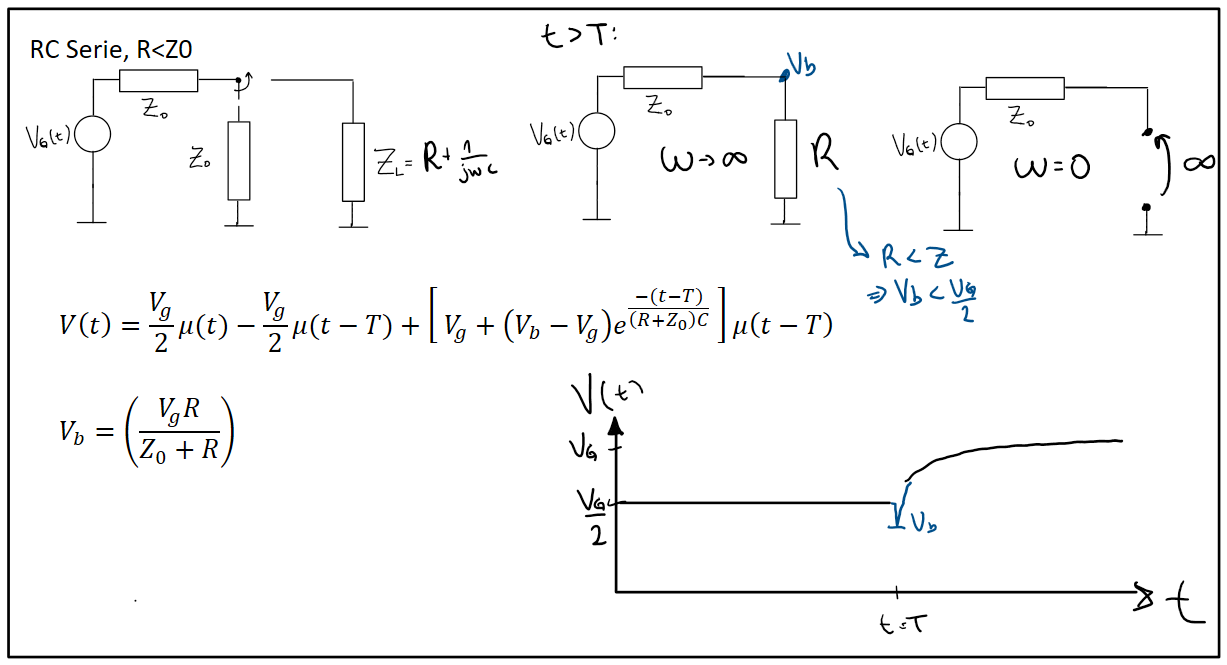 RC Serie, R<Z0
t>T:
Z₀
V_G(t)
Z₀
Z_L = R + 1/jωC
Z₀
V_b
V_G(t)
ω→∞
R
Z₀
V_G(t)
ω=0
∞
R < Z
⇒ V_b < V_G/2
V(t) = V_g/2 μ(t) − V_g/2 μ(t − T) + [V_g + (V_b − V_g)e^(−(t−T)/((R+Z₀)C))] μ(t − T)
V_b = (V_g R/(Z₀ + R))
V(t)
V_G
V_G/2
V_b
t=T
t